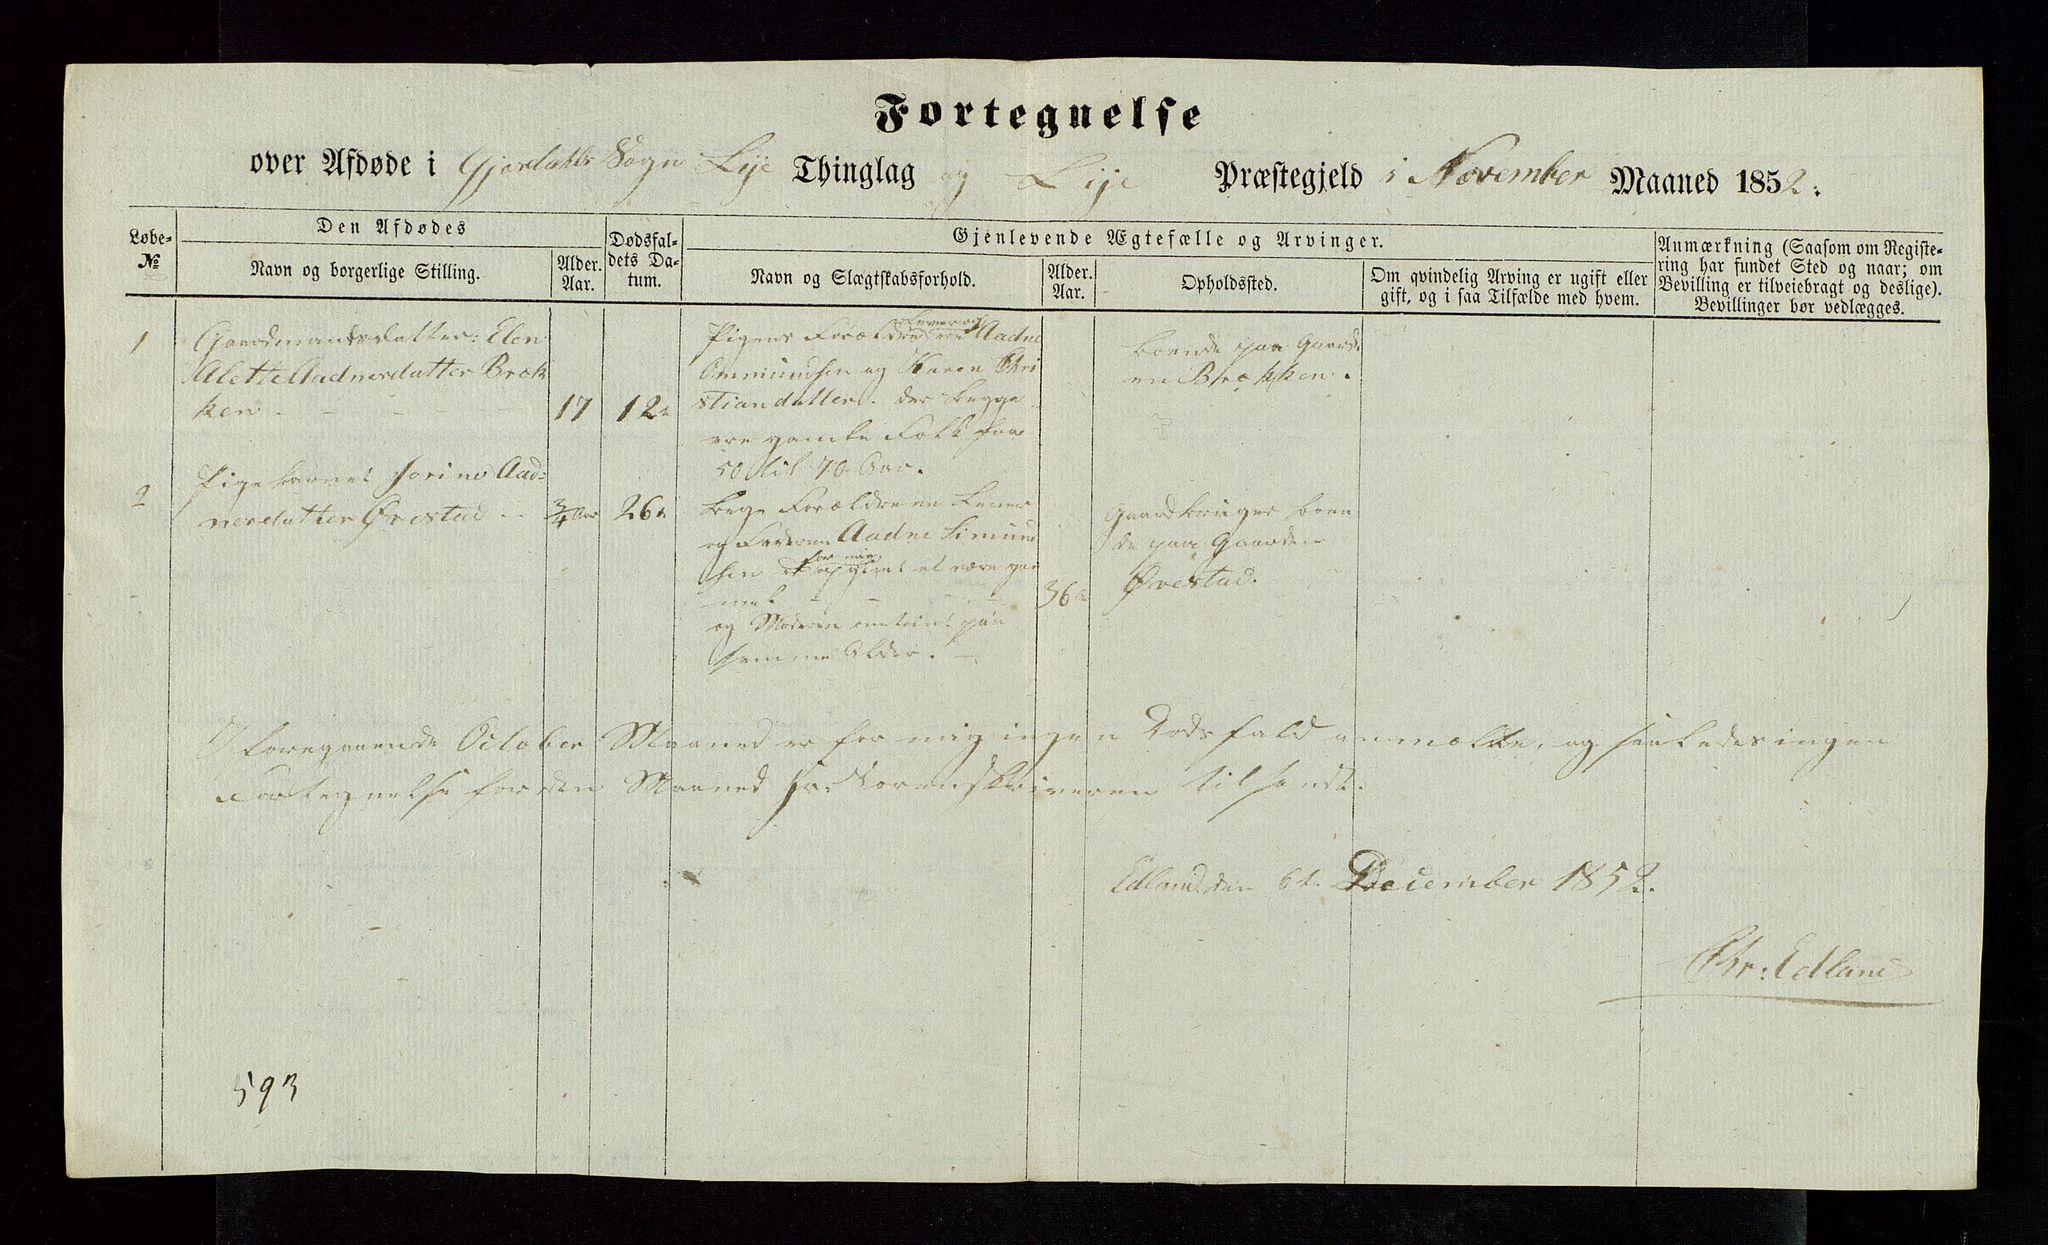 Fortegnelse
over Afdøde i Gjesdahls Sogn Lye Thinglag og Lye Præstegjeld i November Maaned 1852.
Løbe-
№
Den Afdødes
Navn og borgerlige Stilling.
Alder.
Aar.
Dødsfal-
dets Da-
tum.
Gjenlevende Ægtefælle og Arvinger.
Navn og Slægtskabsforhold.
Alder.
Aar.
Opholdssted.
Om qvindelig Arving er ugift eller
gift, og i saa Tilfælde med hvem.
Anmærkning (Saasom om Registe-
ring har fundet Sted og naar; om
Bevilling er tilveiebragt og deslige).
Bevillinger bør vedlægges.
1
Gaardmandsdatter: Elen
Alette Aadnesdatter Bræk
ken
17
12te
Pigens Forældre ere Aadne
Ommundsen og Karen Chri
stiandatter. der begge
ere gamle Folk fra
50 til 70 Aar.
boende paa Gaard
en Brækken.
2
Pigebarnet Serine Aad=
nesdatter Ørestad
3/4 Aar
26te
Begge Forældrene lever
og Faderen Aadne Simund
sen for mig opgivet at være gam
mel
og Moderen omtrent paa
samme Alder.
36
Gaardbruger boen
de paa Gaarden
Ørestad.
I foregaaende October Maaned er for mig ingen Dødsfald anmeldte, og saaledes ingen
Fortegnelse for den Maaned Hr. Sorenskriveren tilsendt.
Edland den 6t. December 1852.
Chr: Edland
593